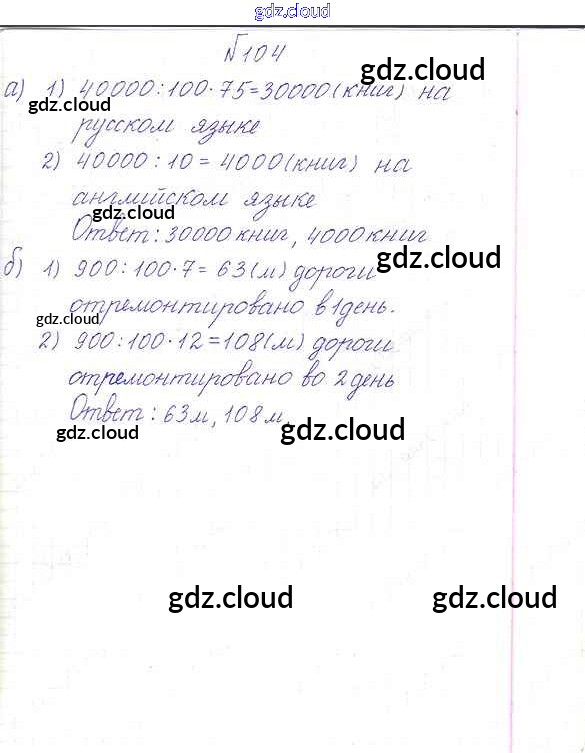 gdz.cloud
№104
gdz.cloud
а) 1) 40000:100·75=30000(книг) на
gdz.cloud
русском языке
2) 40000:10=4000(книг) на
английском языке
gdz.cloud
Ответ: 30000 книг, 4000 книг
gdz.cloud
б) 1) 900:100·7=63(м) дороги
отремонтировано в 1 день.
gdz.cloud
2) 900:100·12=108(м) дороги
отремонтировано во 2 день
Ответ: 63м, 108м.
gdz.cloud
gdz.cloud
gdz.cloud
gdz.cloud